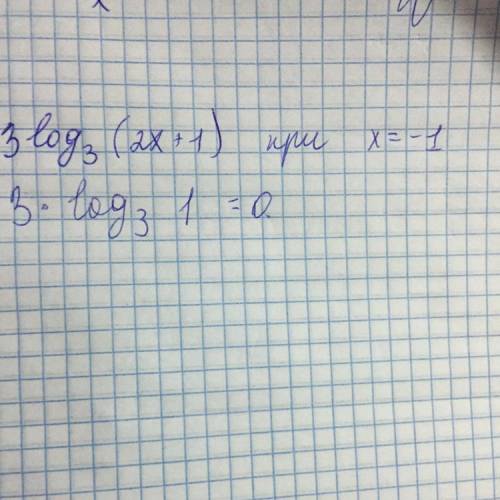 3log₃(2x+1) при x=-1
3·log₃ 1 =0